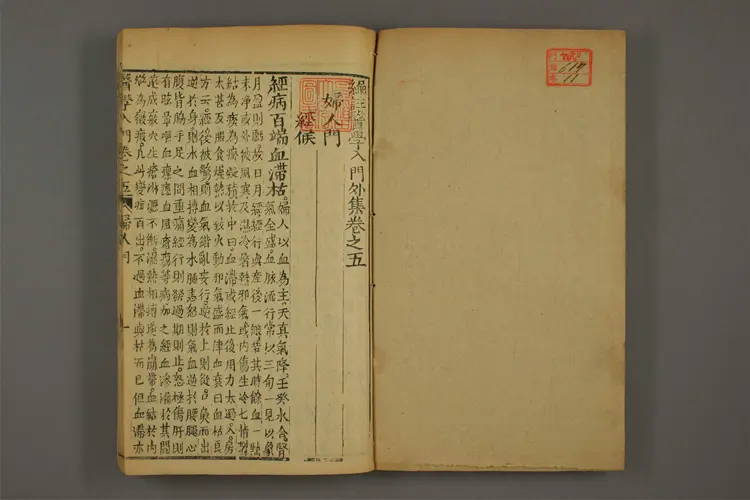 編註醫學入門外集卷之五
婦人門
經候
經病百端血滯枯婦人以血為主天真氣降壬癸水合腎
氣全盛血脉流行常以三旬一見以象
月盈則虧故曰月經經行與產後一般若其時餘血一點
未淨或外被風寒及濕冷暑熱邪氣或內傷生冷七情鬱
結為痰為瘀凝積於中曰血滯或經止後用力太過入房
太甚及服食燥熱以致火動邪氣盛而津血衰曰血枯良
方云經後被驚則血氣錯亂妄行逆於上則從口鼻而出
逆於身則水血相搏變為水腫恚怒則氣血逆於腰腿心
腹背脇手足之間重痛經行則發過期則止怒極傷肝則
有眩暈嘔血瘰癧血風瘡瘍等病加之經血滲漏於其間
遂成竅穴生瘡淋瀝不斷濕熱相搏遂為崩帶血結於內
變為癥瘕凡此變症百出不過血滯與枯而已但血滯亦
醫學入門卷之五 婦人門